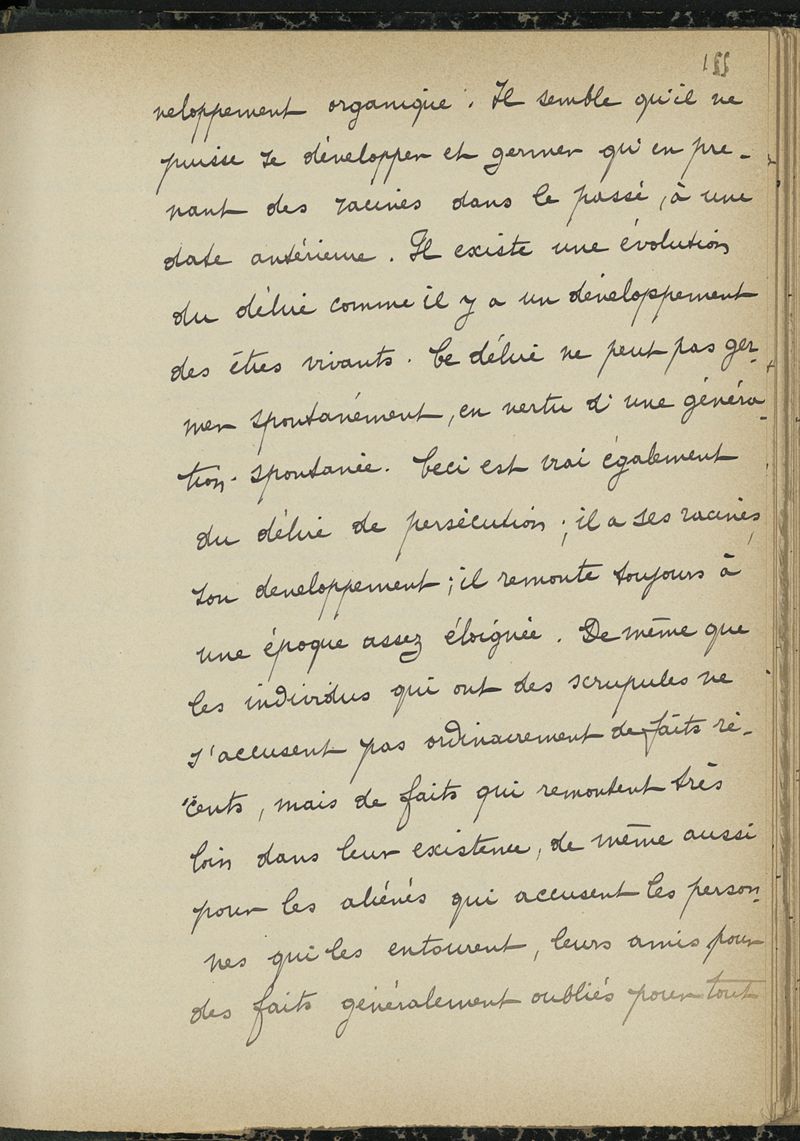 155
veloppement organique. Il semble qu'il ne
puisse se développer et germer qu'en pre-
nant des racines dans le passé, à une
date antérieure. Il existe une évolution
du délire comme il y a un développement
des êtres vivants. Ce délire ne peut pas ger-
mer spontanément, en vertu d'une généra-
tion spontanée. Ceci est vrai également
du délire de persécution; il a ses racines,
son developpement; il remonte toujours à
une époque assez éloignée. De même que
les individus qui ont des scrupules ne
s'accusent pas ordinairement de faits ré-
cents, mais de faits qui remontent très
loin dans leur existence, de même aussi
pour les aliénés qui accusent les person-
nes qui les entourent, leurs amis pour
des faits généralement oubliés pour tout